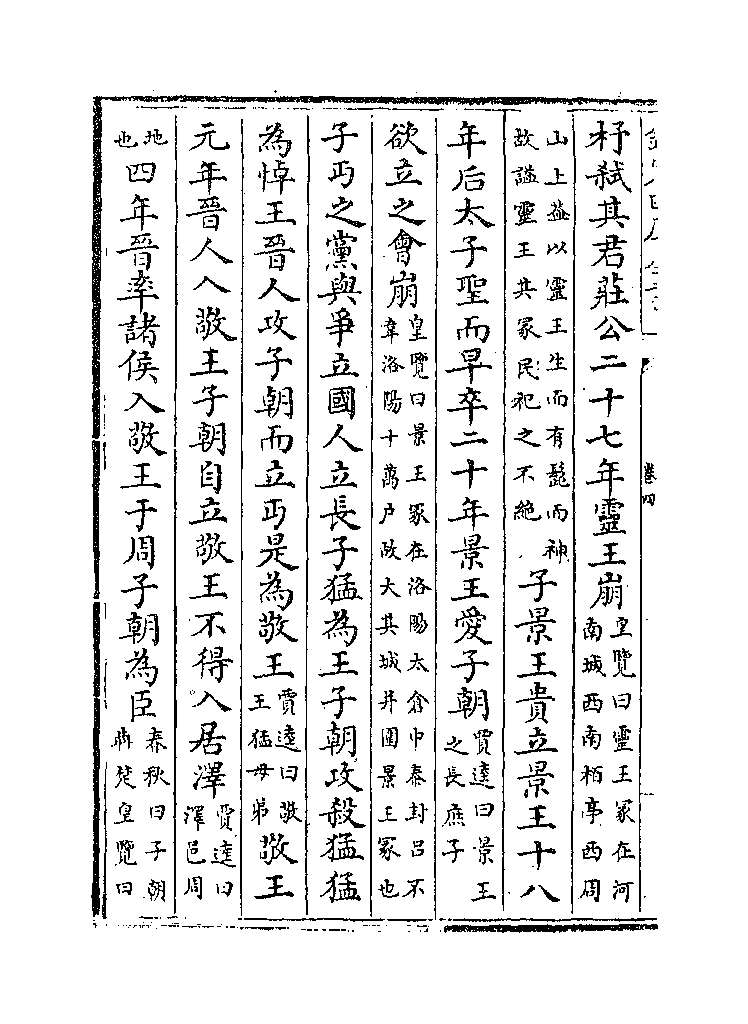 卷四
杼弑其君莊公二十七年靈王崩皇覽曰靈王冢在河南城西南栢亭西周
山上蓋以靈王生而有髭而神故諡靈王其冢民祀之不絶子景王貴立景王十八
年后太子聖而早卒二十年景王愛子朝賈逵曰景王之長庶子
欲立之會崩皇覽曰景王冢在洛陽太倉中秦封吕不韋洛陽十萬户故大其城并圍景王冢也
子丐之黨與爭立國人立長子猛為王子朝攻殺猛猛
為悼王晉人攻子朝而立丐是為敬王賈逵曰敬王猛母弟敬王
元年晉人入敬王子朝自立敬王不得入居澤賈逵曰澤邑周
地也四年晉率諸侯入敬王于周子朝為臣春秋曰子朝奔楚皇覽曰